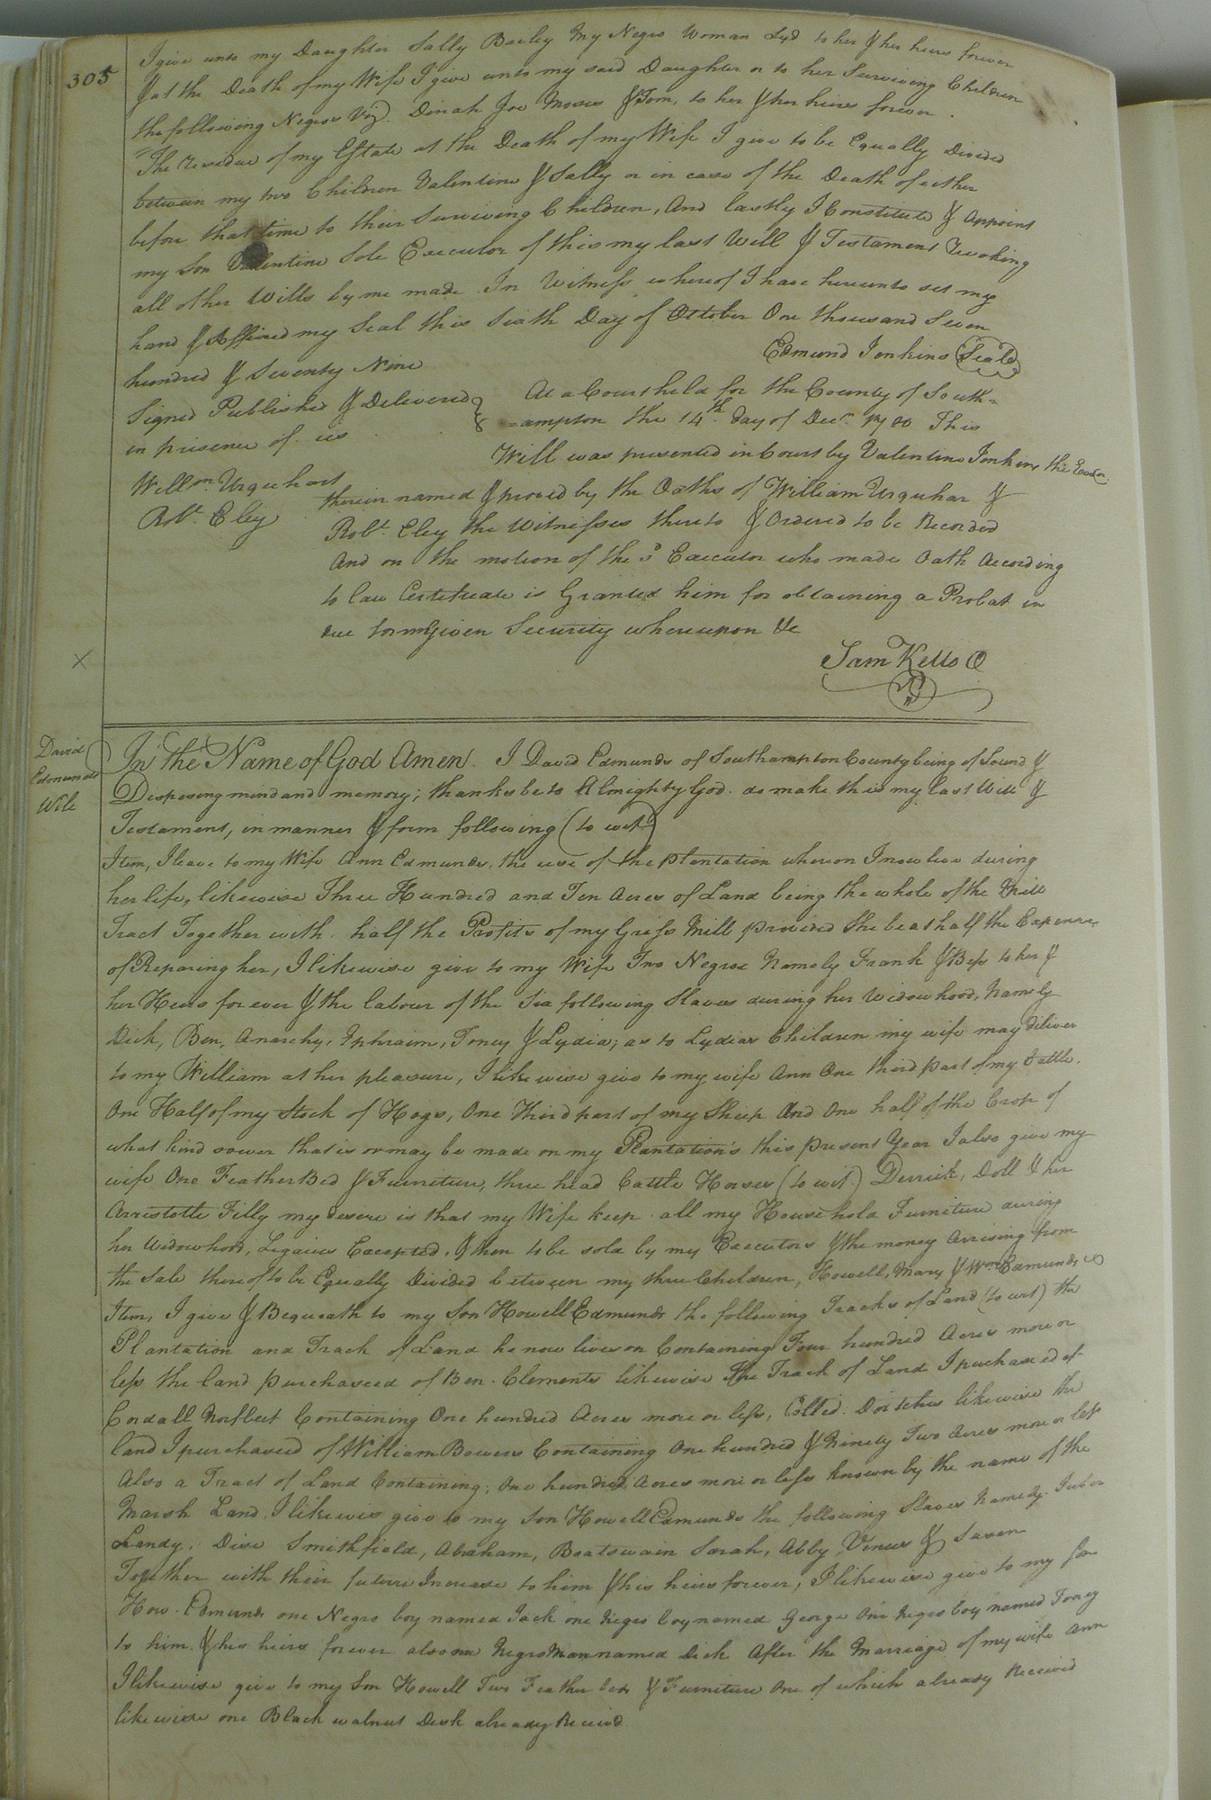 305
I give unto my Daughter Sally Bailey My Negro Woman Lyd to her & her heirs forever
& at the Death of my Wife I give unto my said Daughter or to her Surviving Children
the following Negroes Viz. Dinah Joe Moses & Tom, to her & her heirs forever.
The residue of my Estate at the Death of my Wife I give to be Equally Divided
between my two Children Valentine & Sally or in case of the Death of either
before that time to their Surviving Children, And lastly I Constitute & Appoint
my Son Valentine Sole Executor of this my last Will & Testament Revoking
all other Wills by me made In Witness whereof I have hereunto set my
hand & Affixed my Seal this Sixth Day of October One thousand Seven
hundred & Seventy Nine
Edmund Jenkins Seal
Signed Published & Delivered
in presence of us
Willm. Urquhart
Robt. Eley
At a Court held for the County of South=
=ampton the 14th. Day of Decr. 1780 This
Will was presented in Court by Valentine Jenkins the Exor.
therein named & proved by the Oaths of William Urquhar &
Robt. Eley the Witnesses thereto & Ordered to be Recorded
And on the motion of the sd Executor who made Oath According
to law Certificate is Granted him for obtaining a Probat in
due form Given Security whereupon &c
Sam Kello C
X
David
Edmunds
Will
In the Name of God Amen. I David Edmunds of Southampton County being of Sound &
Desposing mind and memory; thanks be to Almighty God. do make this my last Will &
Testament, in manner & form following (to wit)
Item, I leave to my Wife Ann Edmunds, the use of the plantation whereon I now live during
her life, likewise Three Hundred and Ten Acres of Land being the whole of the Mill
Tract Together with half the Profits of my Gress Mill provided She be at half the Expence
of Reparing her, I likewise give to my Wife Two Negroe Namely Frank & Bess to her &
her Heirs for ever & the labour of the Six following Slaves during her Widowhood, Namely
Dick, Ben, Anarchy, Ephraim, Toney & Lydia; as to Lydias Children my wife may diliver
to my William at her pleasure, I likewise give to my wife Ann One third part of my Cattle.
One Half of my Stock of Hogs, One Third part of my Sheep And One half of the Crop of
what kind sower that is or may be made on my Plantation's this present Year I also give my
wife One Feather Bed & Furniture, three head Cattle Horses (to wit) Derrick, Doll & her
Arristotle Filly my desere is that my Wife keep all my Household Furniture during
her Widowhood, Legaices Excepted, & then to be sold by my Executors & the money Arrising from
the Sale thereof to be Equally Divided between my three Children, Howell, Mary & Wm. Edmunds
Item, I give & Bequeath to my Son Howell Edmunds the following Tracks of Land (to wit) the
Plantation and Track of Land he now lives on Containing Four hundred Acres more or
less the land purchased of Ben. Clements likewise the Track of Land I purchased of
Cordall Norfleet Containing One hundred Acres more or less, Called likewise the
land I purchased of William Bowers Containing One hundred & Ninety Two Acres more or less
Also a Tract of Land Containing, One hundred Acres more or less known by the name of the
Marsh Land. I likewis give to my Son Howell Edmunds the following Slaves Namely.
Landy, Dise Smithfield, Abraham, Boatswain Sarah, Abby, Venus &
Together with their future Increase to him & his heirs forever, I likewise give to my son
How. Edmunds one Negro boy named Jack one Negro boy named George One Negro boy named Toney
to him & his heirs forever also one Negro Man named Dick After the Marriage of my wife Ann
I likewise give to my Son Howell Two Feather beds & Furniture One of which already Received
likewise one Black walnut Desk already Received